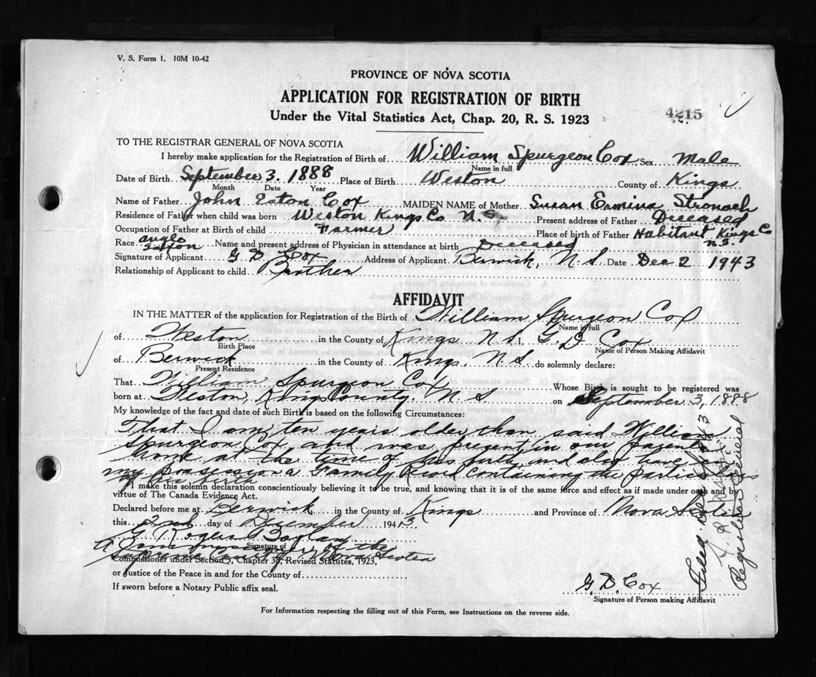 V. S. Form 1. 10M 10-42
PROVINCE OF NOVA SCOTIA
APPLICATION FOR REGISTRATION OF BIRTH
4215
Under the Vital Statistics Act, Chap. 20, R. S. 1923
TO THE REGISTRAR GENERAL OF NOVA SCOTIA
I hereby make application for the Registration of Birth of William Spurgeon Cox Sex Male
Name in full
Date of Birth September 3. 1888 Place of Birth Weston County of Kings
Month Date Year
Name of Father John Eaton Cox MAIDEN NAME of Mother Susan Ermina Stronach
Residence of Father when child was born Weston Kings Co N.S Present address of Father Deceased
Occupation of Father at Birth of child Farmer Place of birth of Father Habitant Kings Co N.S.
Race Anglo Saxon Name and present address of Physician in attendance at birth Deceased
Signature of Applicant G D Cox Address of Applicant Berwick, N.S. Date Dec 2 1943
Relationship of Applicant to child Brother
AFFIDAVIT
IN THE MATTER of the application for Registration of the Birth of William Spurgeon Cox
Name in full
of Weston in the County of Kings N.S. I, G. D Cox
Birth Place Name of Person Making Affidavit
of Berwick in the County of Kings, N S do solemnly declare:
Present Residence
That William Spurgeon Cox Whose Birth is sought to be registered was
born at Weston, Kings County, N S on September 3, 1888
My knowledge of the fact and date of such Birth is based on the following Circumstances:
That I am ten years older than said William
Spurgeon Cox, and was present in our parents
home at the time of his birth and also have in
my possession a Family Record containing the particulars
of his birth
I make this solemn declaration conscientiously believing it to be true, and knowing that it is of the same force and effect as if made under oath and by
virtue of The Canada Evidence Act.
Declared before me at Berwick in the County of Kings and Province of Nova Scotia
this 2nd day of December 1943
Signature of
A Commissioner of the
Supreme Court of Nova Scotia
Commissioner under Section 3, Chapter 38, Revised Statutes, 1923,
or Justice of the Peace in and for the County of
If sworn before a Notary Public affix seal.
G. D. Cox
Signature of Person making Affidavit
For Information respecting the filling out of this Form, see Instructions on the reverse side.
Filed Dec 1943
Registrar General